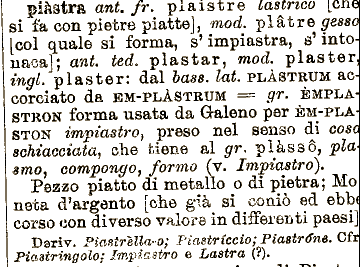 piàstra ant. fr. plaistre lastrico [che
si fa con pietre piatte], mod. plâtre gesso
[col quale si forma, s'impiastra, s'into-
naca]; ant. ted. plastar, mod. plaster,
ingl. plaster: dal bass. lat. PLÀSTRUM ac-
corciato da EM-PLÀSTRUM = gr. ÈMPLA-
STRON forma usata da Galeno per ÈM-PLA-
STON impiastro, preso nel senso di cosa
schiacciata, che tiene al gr. plàssô, pla-
smo, compongo, formo (v. Impiastro).
Pezzo piatto di metallo o di pietra; Mo-
neta d'argento [che già si coniò ed ebbe
corso con diverso valore in differenti paesi]
Deriv. Piastrèlla-o; Piastríccio; Piastróne. Cfr
Piastringolo; Impiastro e Lastra (?).